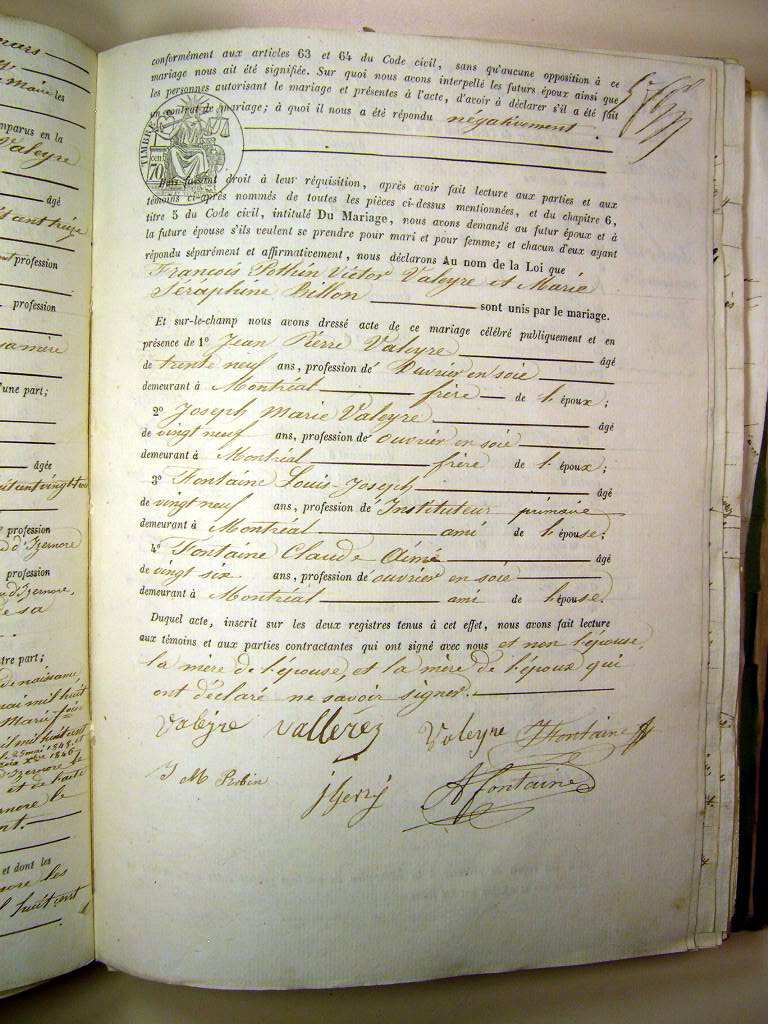 mars
Maire les
mparus en la
Valeyre
âgé
profession
profession
sa mère
d'une part;
âgée
profession
d'Izernore
profession
d'Izernore,
de sa
tre part;
de naissance,
mai mil huit
Marie
mil huit cent
le 25 mai 1848
Izernore le
et dont les
huit cent
conformément aux articles 63 et 64 du Code civil, sans qu'aucune opposition à ce
mariage nous ait été signifiée. Sur quoi nous avons interpellé les futurs époux ainsi que
les personnes autorisant le mariage et présentes à l'acte, d'avoir à déclarer s'il a été fait
un contrat de mariage; à quoi il nous a été répondu négativement.
TIMBRE
cen
70
Puis faisant droit à leur réquisition, après avoir fait lecture aux parties et aux
témoins ci-après nommés de toutes les pièces ci-dessus mentionnées, et du chapitre 6,
titre 5 du Code civil, intitulé Du Mariage, nous avons demandé au futur époux et à
la future épouse s'ils veulent se prendre pour mari et pour femme; et chacun d'eux ayant
répondu séparément et affirmativement, nous déclarons Au nom de la Loi que
François Pothin Victor Valeyre et Marie
Séraphine Billon sont unis par le mariage.
Et sur-le-champ nous avons dressé acte de ce mariage célébré publiquement et en
présence de 1º Jean Pierre Valeyre âgé
de trente neuf ans, profession de Ouvrier en soie
demeurant à Montréal frère de l'époux;
2º Joseph Marie Valeyre âgé
de vingt neuf ans, profession de ouvrier en soie
demeurant à Montréal frère de l'époux;
3º Fontaine Louis-Joseph âgé
de vingt neuf ans, profession de Instituteur primaire
demeurant à Montréal ami de l'épouse;
4º Fontaine Claude Aimé âgé
de vingt six ans, profession de ouvrier en soie
demeurant à Montréal ami de l'épouse.
Duquel acte, inscrit sur les deux registres tenus à cet effet, nous avons fait lecture
aux témoins et aux parties contractantes qui ont signé avec nous et non l'épouse,
la mère de l'épouse, et la mère de l'époux qui
ont déclaré ne savoir signer.
Valeyre Vallerey Valeyre JFontaine
J M Robin
AFontaine